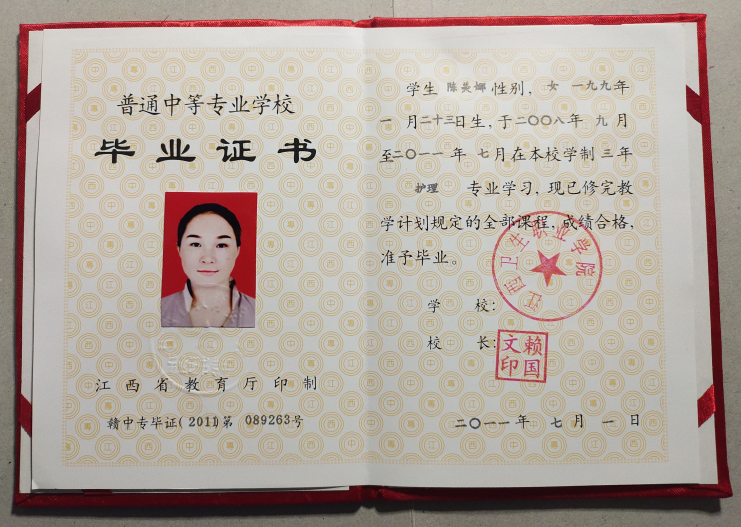 普通中等专业学校
毕业证书
江西省教育厅印制
赣中专毕证(2011)第 089263号
学生 陈美娜 性别, 女 一九九年
一月二十三日生, 于二〇〇八年 九月
至二〇一一年 七月在本校学制 三年
护理 专业学习, 现已修完教
学计划规定的全部课程, 成绩合格,
准予毕业。
学 校:
江西卫生职业学院
校 长:
赖国文印
二〇一一年 七月 一日